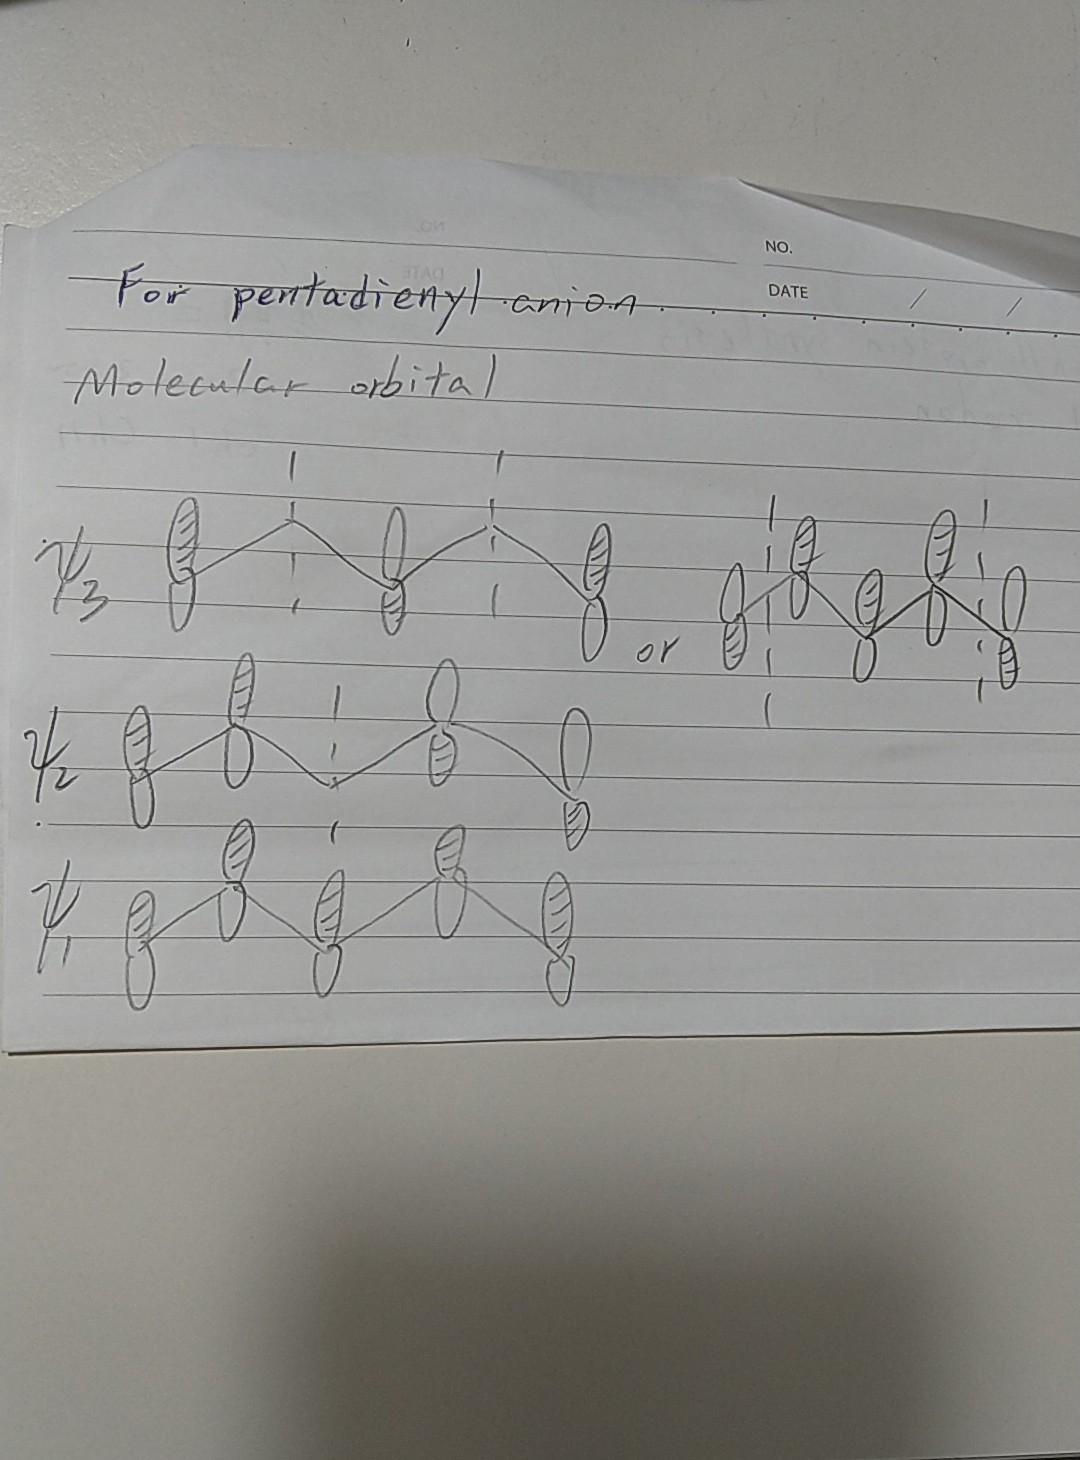 NO.
DATE / /
For pentadienyl anion
Molecular orbital
ψ3
or
ψ2
ψ1